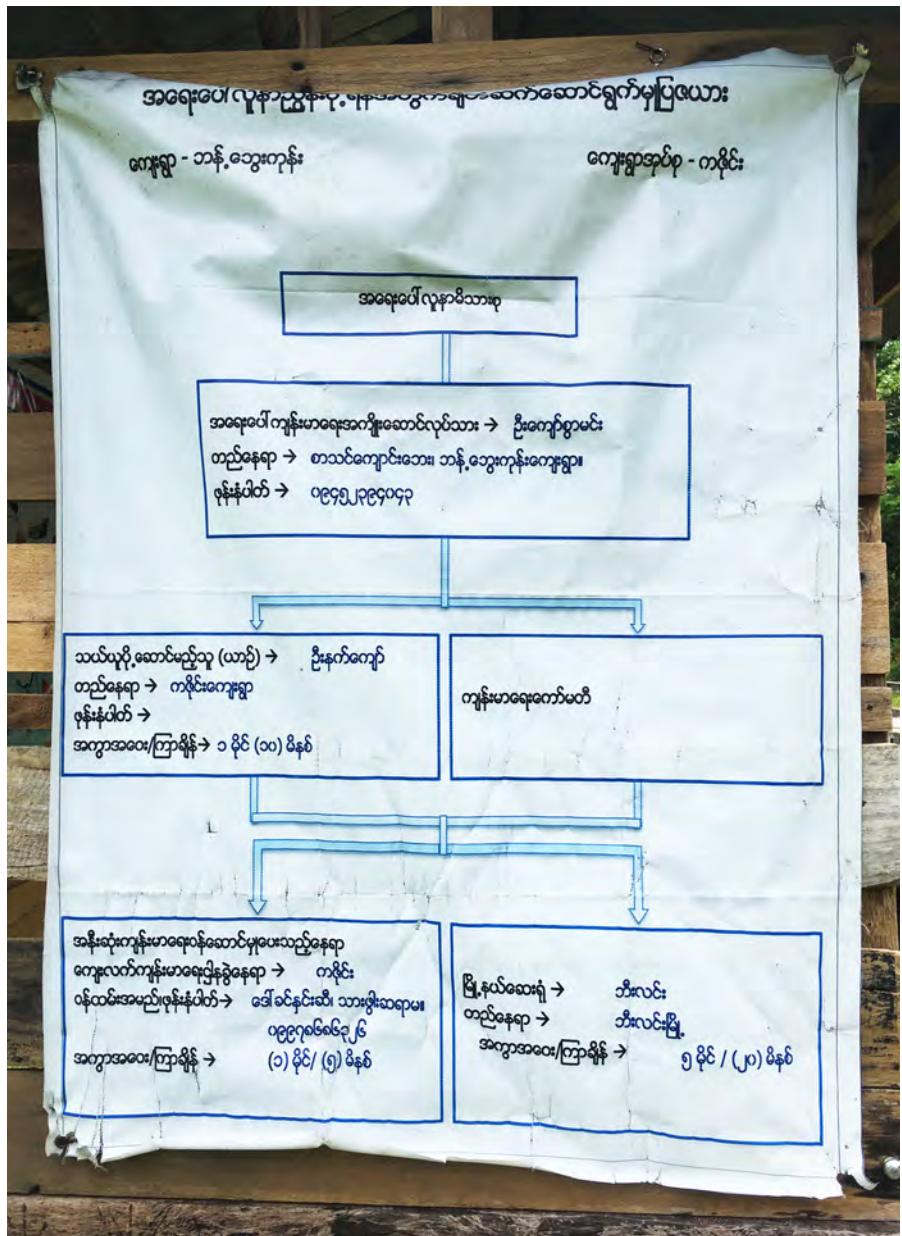 အရေးပေါ်လူနာညွှန်းပို့ရန်အတွက်ချိတ်ဆက်ဆောင်ရွက်မှုပြဇယား
ကျေးရွာ - ဘန့်ဘွေးကုန်း
ကျေးရွာအုပ်စု - ကဇိုင်း
အရေးပေါ်လူနာမိသားစု
အရေးပေါ်ကျန်းမာရေးအကျိုးဆောင်လုပ်သား → ဦးကျော်စွာမင်း
တည်နေရာ → စာသင်ကျောင်းဘေး၊ ဘန့်ဘွေးကုန်းကျေးရွာ။
ဖုန်းနံပါတ် → ၀၉၄၅၂၃၉၄၀၄၃
သယ်ယူပို့ဆောင်မည့်သူ (ယာဉ်) → ဦးနက်ကျော်
တည်နေရာ → ကဇိုင်းကျေးရွာ
ဖုန်းနံပါတ် →
အကွာအဝေး/ကြာချိန် → ၁ မိုင် (၁၀) မိနစ်
ကျန်းမာရေးကော်မတီ
အနီးဆုံးကျန်းမာရေးဝန်ဆောင်မှုပေးသည့်နေရာ
ကျေးလက်ကျန်းမာရေးဌာနခွဲနေရာ → ကဇိုင်း
ဝန်ထမ်းအမည်၊ဖုန်းနံပါတ် → ဒေါ်ခင်နှင်းဆီ၊ သားဖွါးဆရာမ။
အကွာအဝေး/ကြာချိန် → (၁) မိုင်/ (၅) မိနစ်
မြို့နယ်ဆေးရုံ → ဘီးလင်း
တည်နေရာ → ဘီးလင်းမြို့
အကွာအဝေး/ကြာချိန် → ၅ မိုင် / (၂၀) မိနစ်